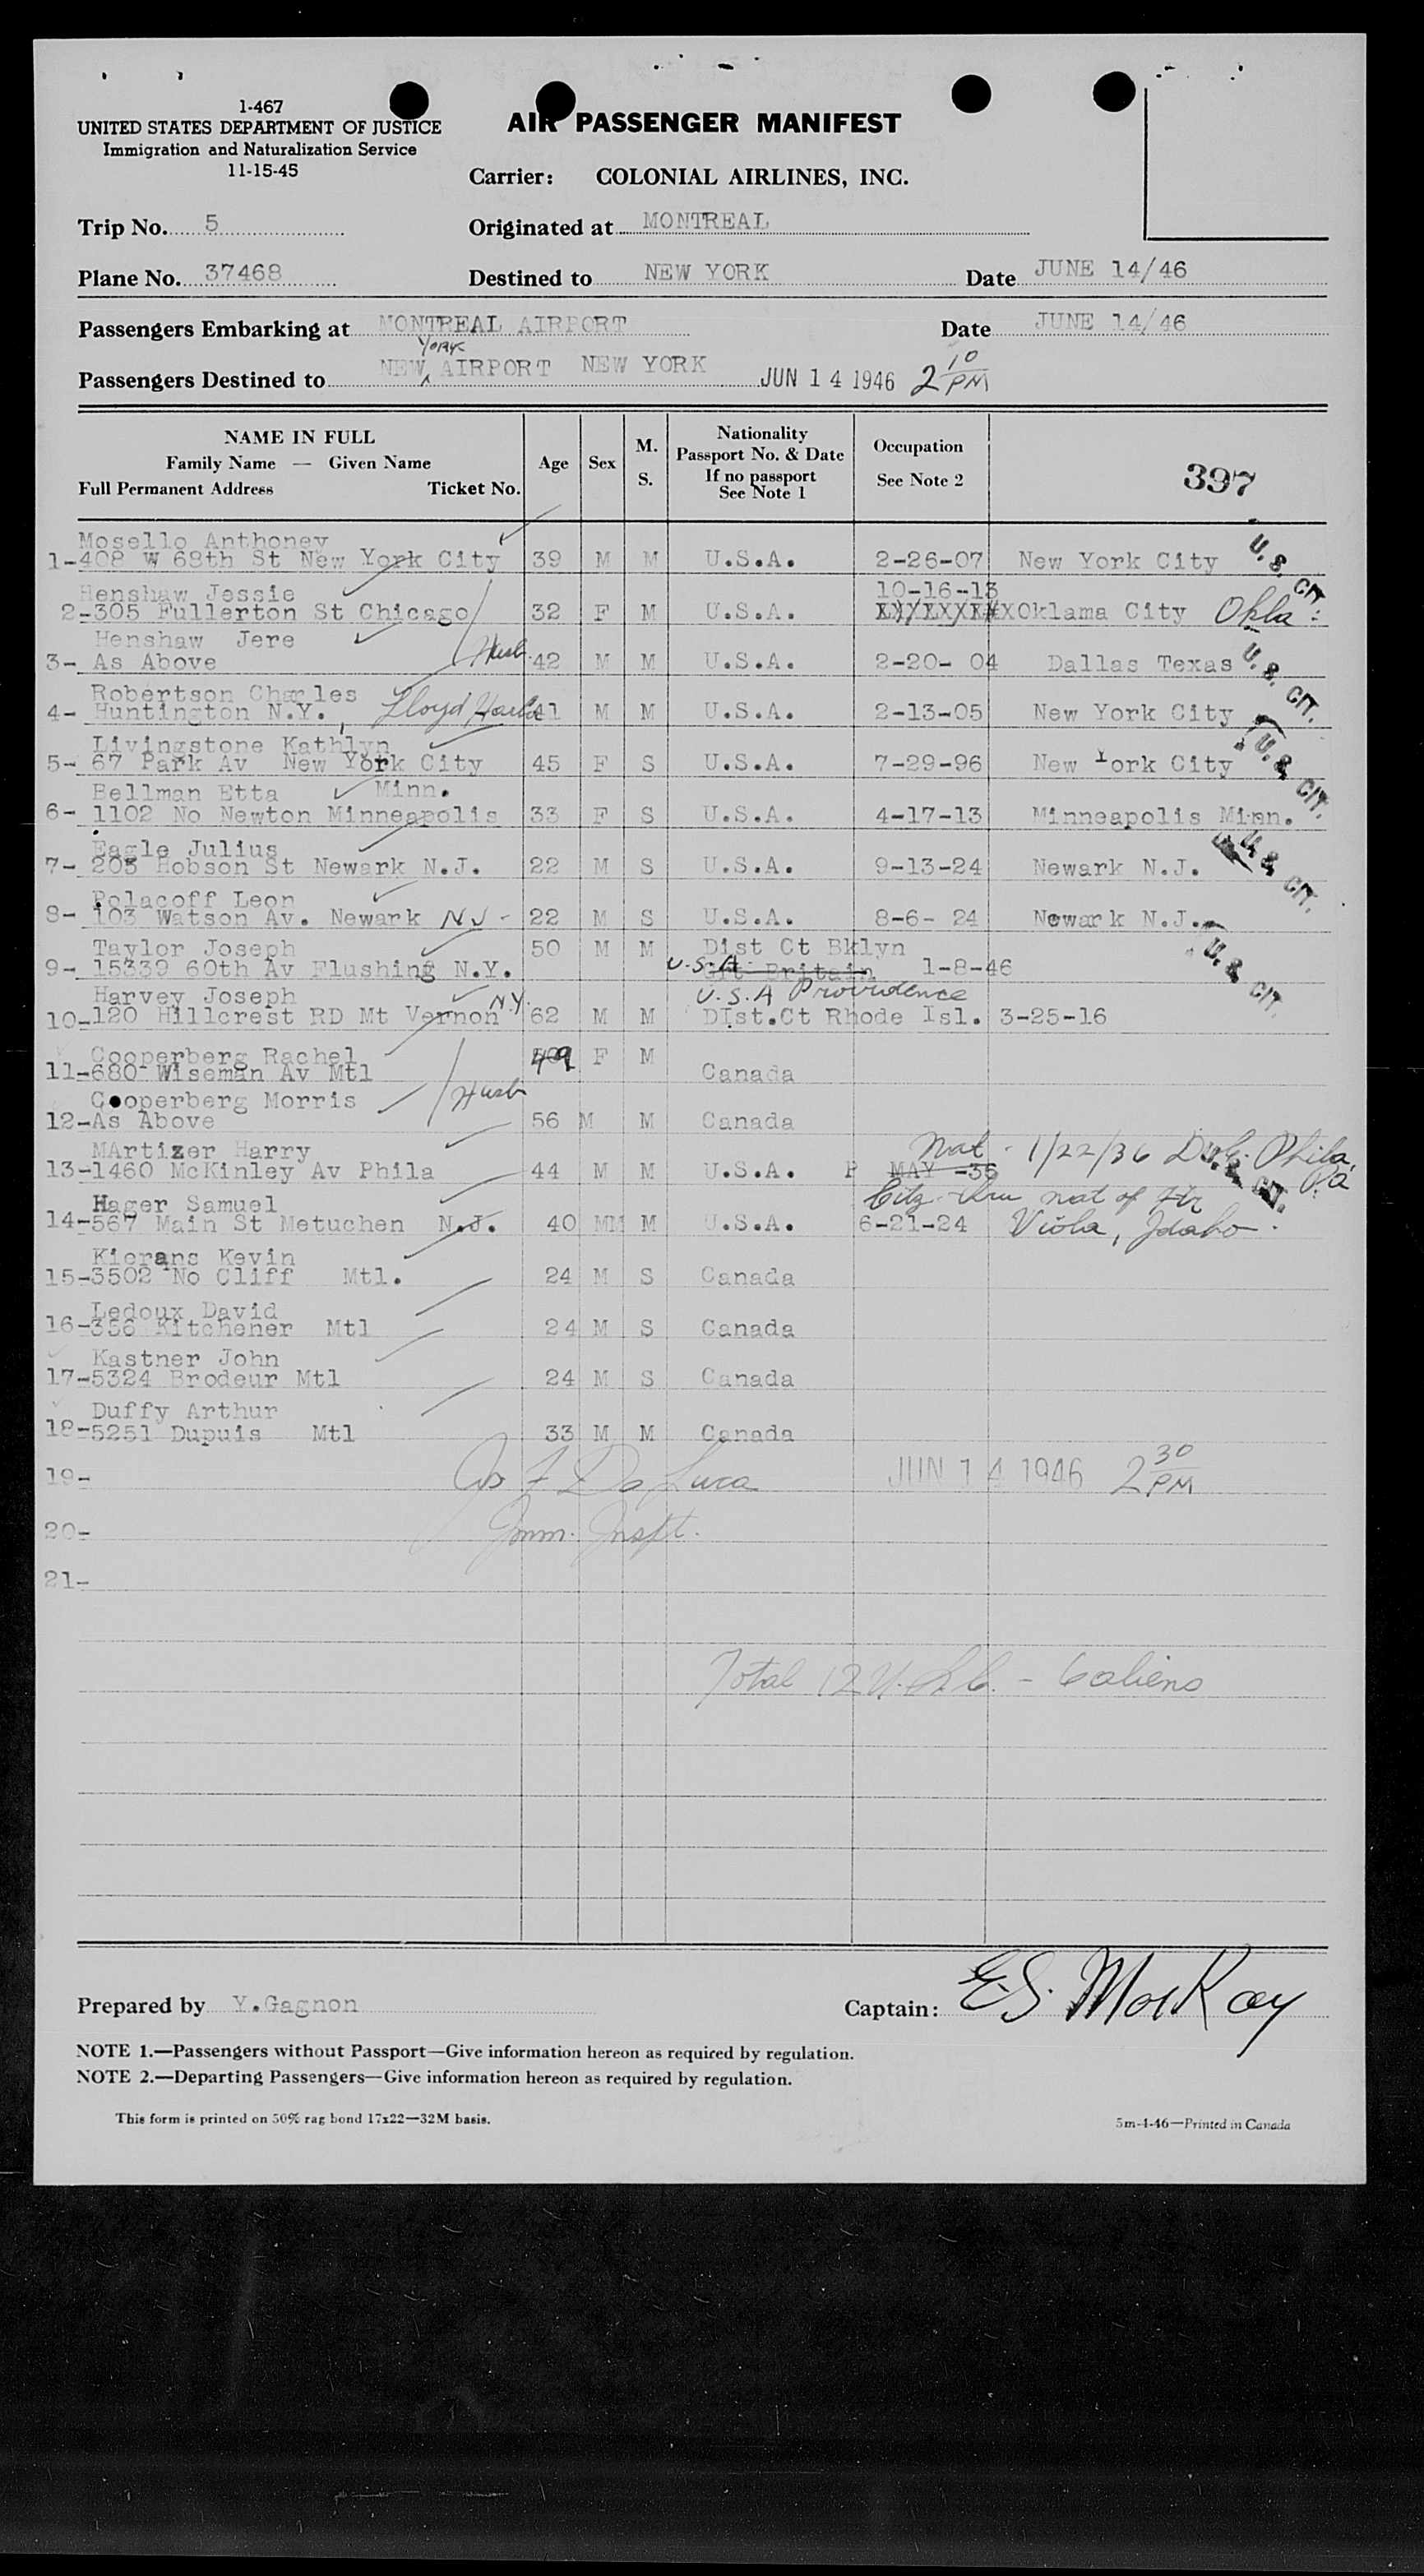 1-467
UNITED STATES DEPARTMENT OF JUSTICE
Immigration and Naturalization Service
11-15-45
AIR PASSENGER MANIFEST
Carrier: COLONIAL AIRLINES, INC.
Trip No. 5 Originated at MONTREAL
Plane No. 37468 Destined to NEW YORK Date JUNE 14/46
Passengers Embarking at MONTREAL AIRPORT Date JUNE 14/46
York
Passengers Destined to NEW AIRPORT NEW YORK JUN 14 1946 2 10 PM
NAME IN FULL
Family Name — Given Name
Full Permanent Address Ticket No.
Age
Sex
M.
S.
Nationality
Passport No. & Date
If no passport
See Note 1
Occupation
See Note 2
397
Mosello Anthoney
1-408 W 68th St New York City 39 M M U.S.A. 2-26-07 New York City U.S. CIT.
Henshaw Jessie 10-16-13
2-305 Fullerton St Chicago 32 F M U.S.A. Oklama City Okla.
Henshaw Jere Husb.
3- As Above 42 M M U.S.A. 2-20- 04 Dallas Texas U.S. CIT.
Robertson Charles
4- Huntington N.Y., Lloyd 41 M M U.S.A. 2-13-05 New York City
Livingstone Kathlyn
5- 67 Park Av New York City 45 F S U.S.A. 7-29-96 New York City U.S. CIT.
Bellman Etta Minn.
6- 1102 No Newton Minneapolis 33 F S U.S.A. 4-17-13 Minneapolis Minn.
Eagle Julius
7- 205 Hobson St Newark N.J. 22 M S U.S.A. 9-13-24 Newark N.J. U.S. CIT.
Polacoff Leon
8- 103 Watson Av. Newark NJ- 22 M S U.S.A. 8-6- 24 Newark N.J.
Taylor Joseph 50 M M Dist Ct Bklyn
9- 15339 60th Av Flushing N.Y. U.S.A. Grt Britain 1-8-46 U.S. CIT.
Harvey Joseph N.Y. U.S.A Providence
10-120 Hillcrest RD Mt Vernon 62 M M DIst.Ct Rhode Isl. 3-25-16
Cooperberg Rachel 49 F M
11-680 Wiseman Av Mtl Canada
Cooperberg Morris Husb
12-As Above 56 M M Canada
MArtizer Harry Nat - 1/22/36 D.C. Phila, Pa
13-1460 McKinley Av Phila 44 M M U.S.A. P MAY -36 U.S. CIT.
Hager Samuel Citz thru nat of
14-567 Main St Metuchen N.J. 40 MM M U.S.A. 6-21-24 Viola, Idaho.
Kierans Kevin
15-3502 No Cliff Mtl. 24 M S Canada
Ledoux David
16-356 Kitchener Mtl 24 M S Canada
Kastner John
17-5324 Brodeur Mtl 24 M S Canada
Duffy Arthur
18-5251 Dupuis Mtl 33 M M Canada
19- De Luca JUN 14 1946 2 30 PM
20- Imm. Inspt.
21-
Total 12 U.S.C. - 6 aliens
Prepared by Y.Gagnon Captain: E.S. MacKay
NOTE 1.—Passengers without Passport—Give information hereon as required by regulation.
NOTE 2.—Departing Passengers—Give information hereon as required by regulation.
This form is printed on 50% rag bond 17x22—32M basis. 5m-4-46—Printed in Canada